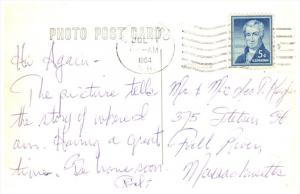 PHOTO POST CARD
JUL
AM
1964
5¢
Hi Again -
The picture tells
the story of where I
am. Having a great
time. Be home soon.
Mr. & Mrs.
375 St
Fall River
Massachusetts